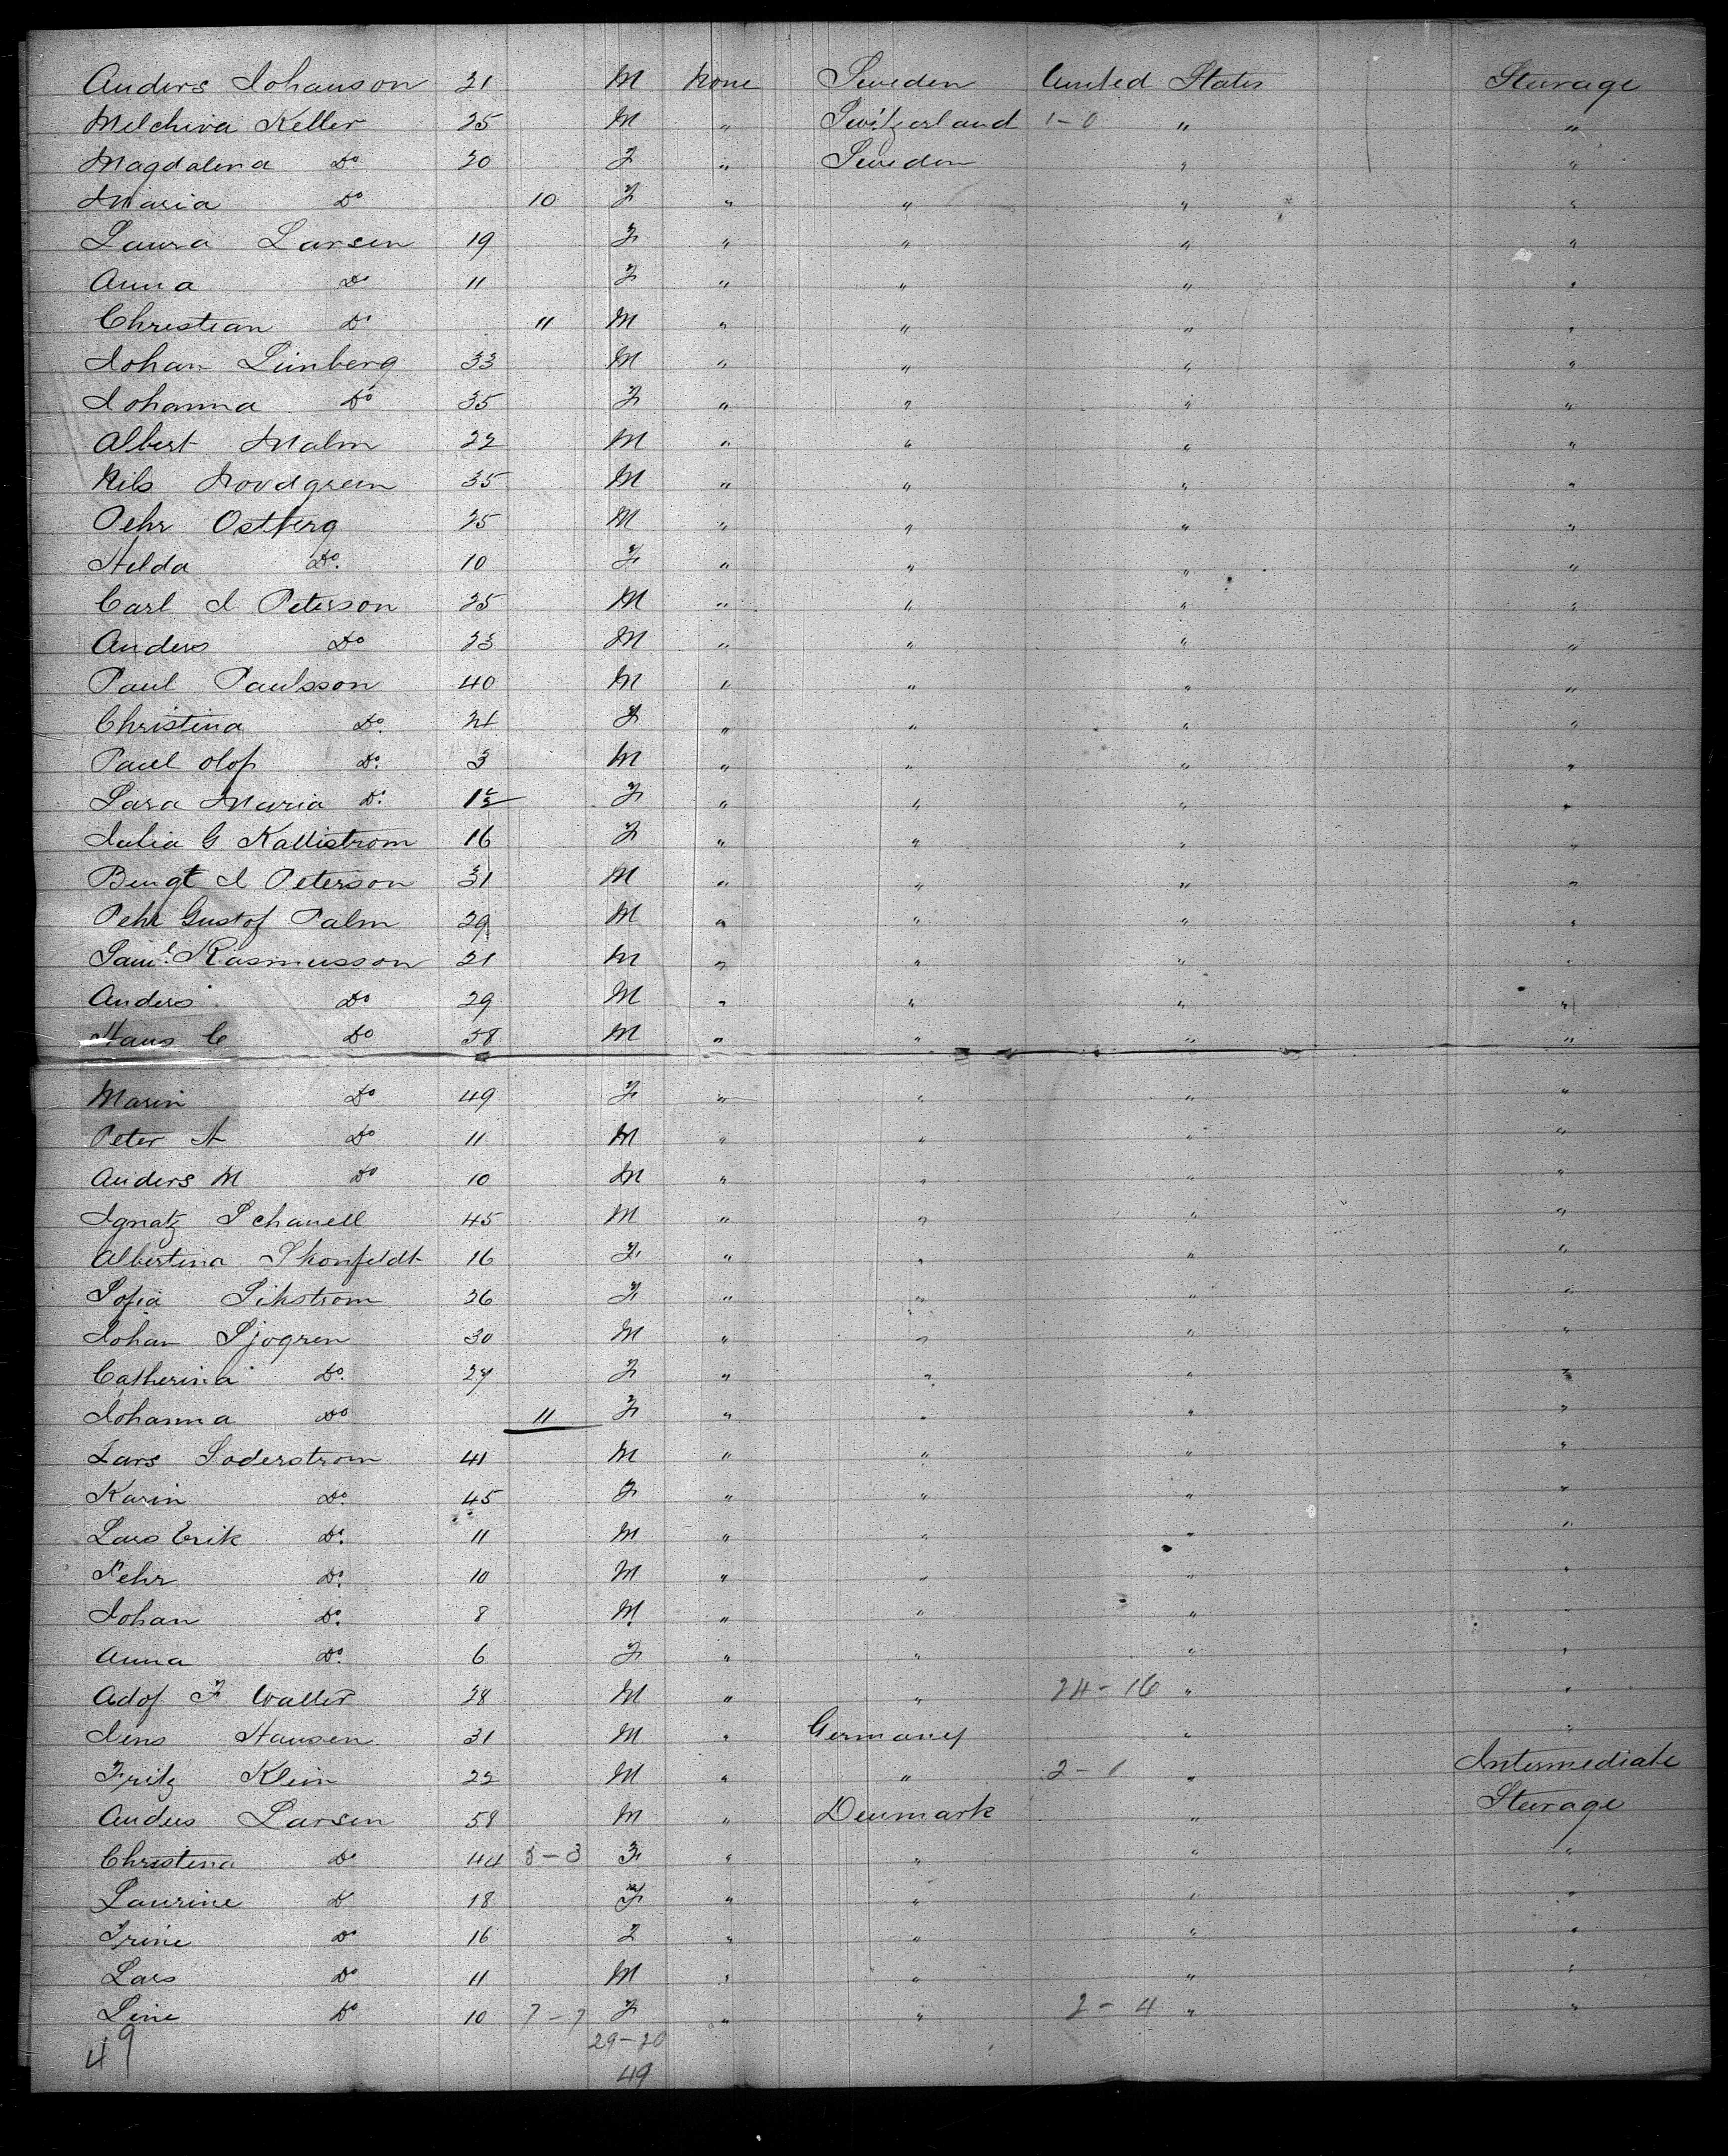 Anders Johanson 21 M None Sweden United States Steerage
Melchiva Keller 25 M " Switzerland 1-0 " "
Magdalena Do 20 F " Sweden " "
Maria Do 10 F " " " "
Laura Larsen 19 F " " " "
Anna Do 11 F " " " "
Christian Do 11 M " " " "
Johan Limberg 33 M " " " "
Johanna Do 35 F " " " "
Albert Malm 22 M " " " "
Nils Nordgreen 35 M " " " "
Pehr Ostberg 25 M " " " "
Hilda Do. 10 F " " " "
Carl J Peterson 25 M " " " "
Anders Do 23 M " " " "
Paul Paulsson 40 M " " " "
Christina Do. F " " " "
Paul Olof Do. 3 M " " " "
Sara Maria Do. F " " " "
Julia G Kallistrom 16 F " " " "
Bengt J Peterson 31 M " " " "
Pehr Gustof Palm 29 M " " " "
Saml. Rasmusson 21 M " " " "
Anders Do 29 M " " " "
Hans C Do 58 M " " " "
Marin Do 49 F " " " "
Peter A Do 11 M " " " "
Anders M Do 10 M " " " "
Ignatz Schanell 45 M " " " "
Albertina Skonfeldt 16 F " " " "
Sofia Sikstrom 26 F " " " "
Johan Sjogren 30 M " " " "
Catherina Do. 27 F " " " "
Johanna Do 11 F " " " "
Lars Soderstrom 41 M " " " "
Karin Do. 45 F " " " "
Lars Erik Do. 11 M " " " "
Pehr Do. 10 M " " " "
Johan Do. 8 M " " " "
Anna Do. 6 F " " " "
Adof F Waller 28 M " " 24-16 " "
Jens Hansen 31 M " Germany " "
Fritz Klein 22 M " " 2-1 " Intermediate
Anders Larsen 58 M " Denmark " Steerage
Christina Do 44 5-3 F " " " "
Laurine Do 18 F " " " "
Trine Do 16 F " " " "
Lars Do 11 M " " " "
Line Do 10 7-7 F " " 2-4 " "
49 29-20
49